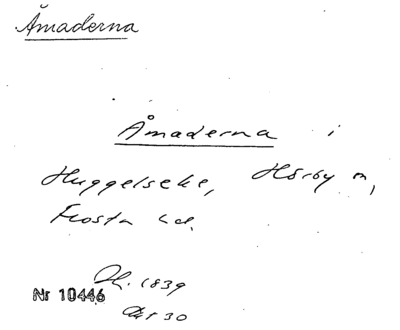 Åmaderna
Åmaderna i
Huggelseke, Hörby sn,
Frosta hd.
1839
Nr 10446
30